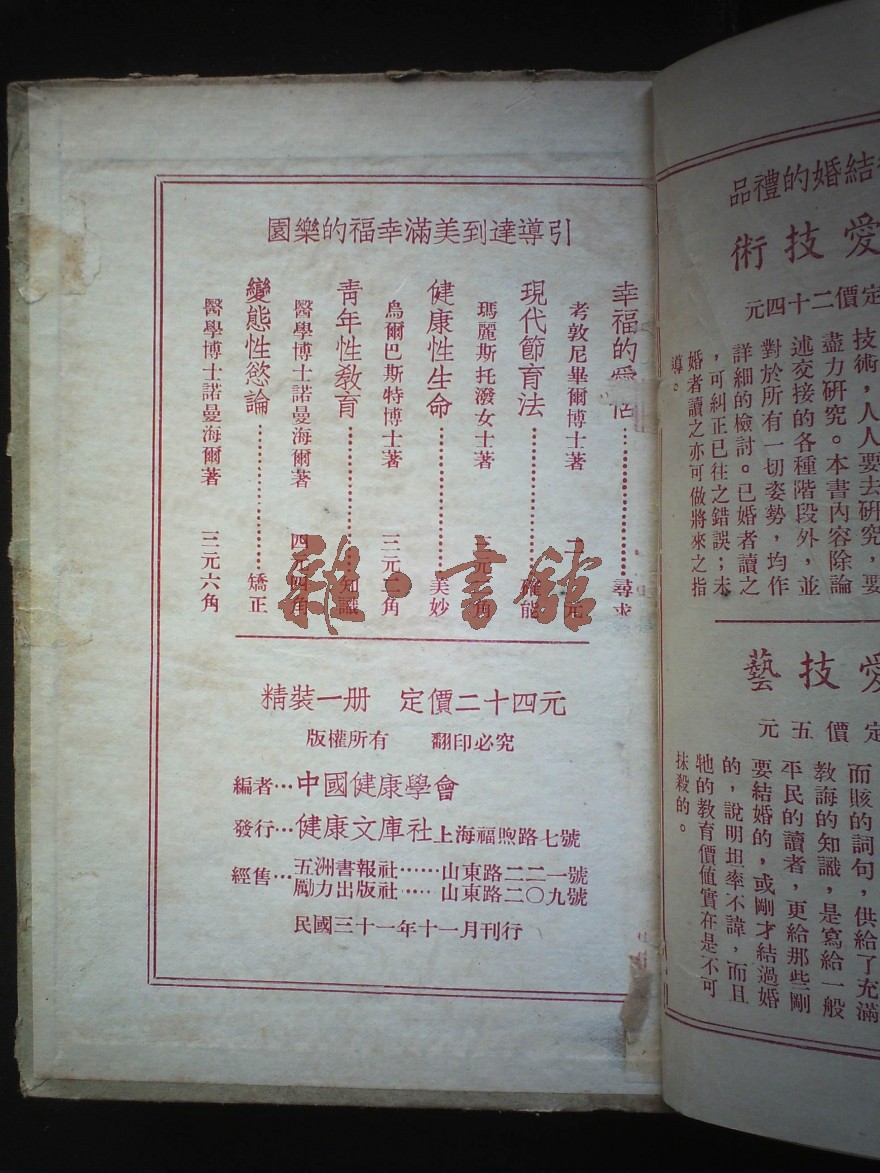 引導達到美滿幸福的樂園
幸福的愛……尋求
考敦尼畢爾博士著 元
現代節育法……確能
瑪麗斯托潑女士著 元 角
健康性生命……美妙
烏爾巴斯特博士著 三元 角
青年性教育……知識
醫學博士諾曼海爾著 四元四角
變態性慾論……矯正
醫學博士諾曼海爾著 三元六角
精裝一册 定價二十四元
版權所有 翻印必究
編者…中國健康學會
發行…健康文庫社上海福煦路七號
經售…五洲書報社……山東路二二一號
勵力出版社……山東路二〇九號
民國三十一年十一月刊行
結婚的禮品
愛技術
定價二十四元
技術，人人要去研究，要
盡力研究。本書內容除論
述交接的各種階段外，並
對於所有一切姿勢，均作
詳細的檢討。已婚者讀之
，可糾正已往之錯誤；未
婚者讀之亦可做將來之指
導。
愛技藝
定價五元
而賅的詞句，供給了充滿
教誨的知識，是寫給一般
平民的讀者，更給那些剛
要結婚的，或剛才結過婚
的，說明坦率不諱，而且
牠的教育價值實在是不可
抹殺的。
雜·書館